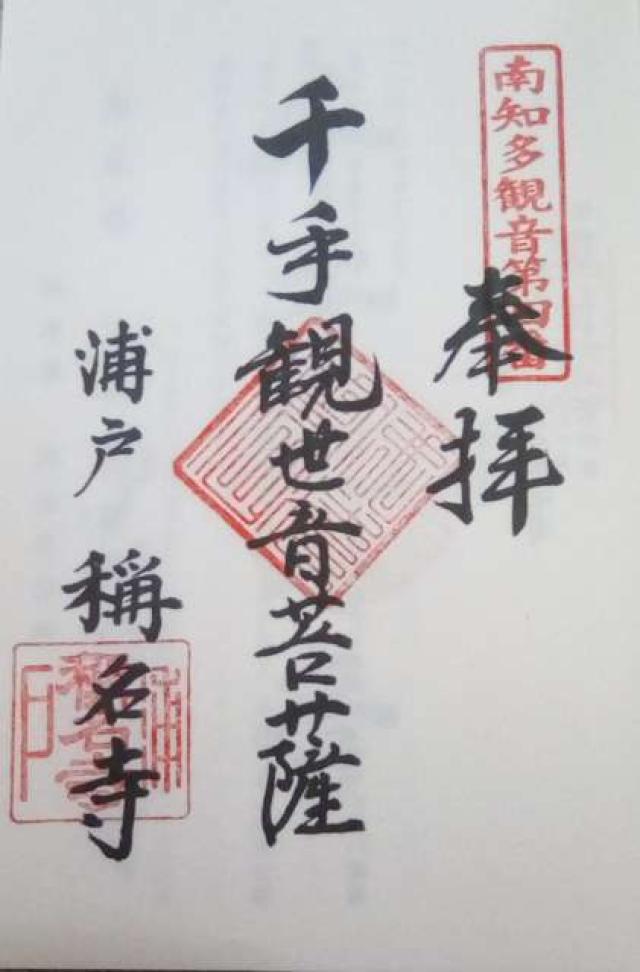 南知多観音第四番
奉拝
千手観世音菩薩
浦戸 稱名寺